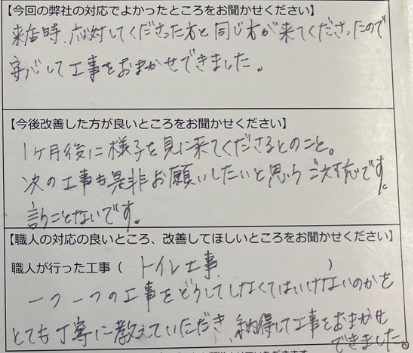 【今回の弊社の対応でよかったところをお聞かせください】
来店時、応対してくださった方と同じ方が来てくださったので
安心して工事をおまかせできました。
【今後改善した方が良いところをお聞かせください】
1ヶ月後に様子を見に来てくださるとのこと。
次の工事も是非お願いしたいと思うご対応です。
言うことないです。
【職人の対応の良いところ、改善してほしいところをお聞かせください】
職人が行った工事（ トイレ工事 ）
一つ一つの工事をどうしてしなくてはいけないのかを
とても丁寧に教えていただき、納得して工事をおまかせ
できました。